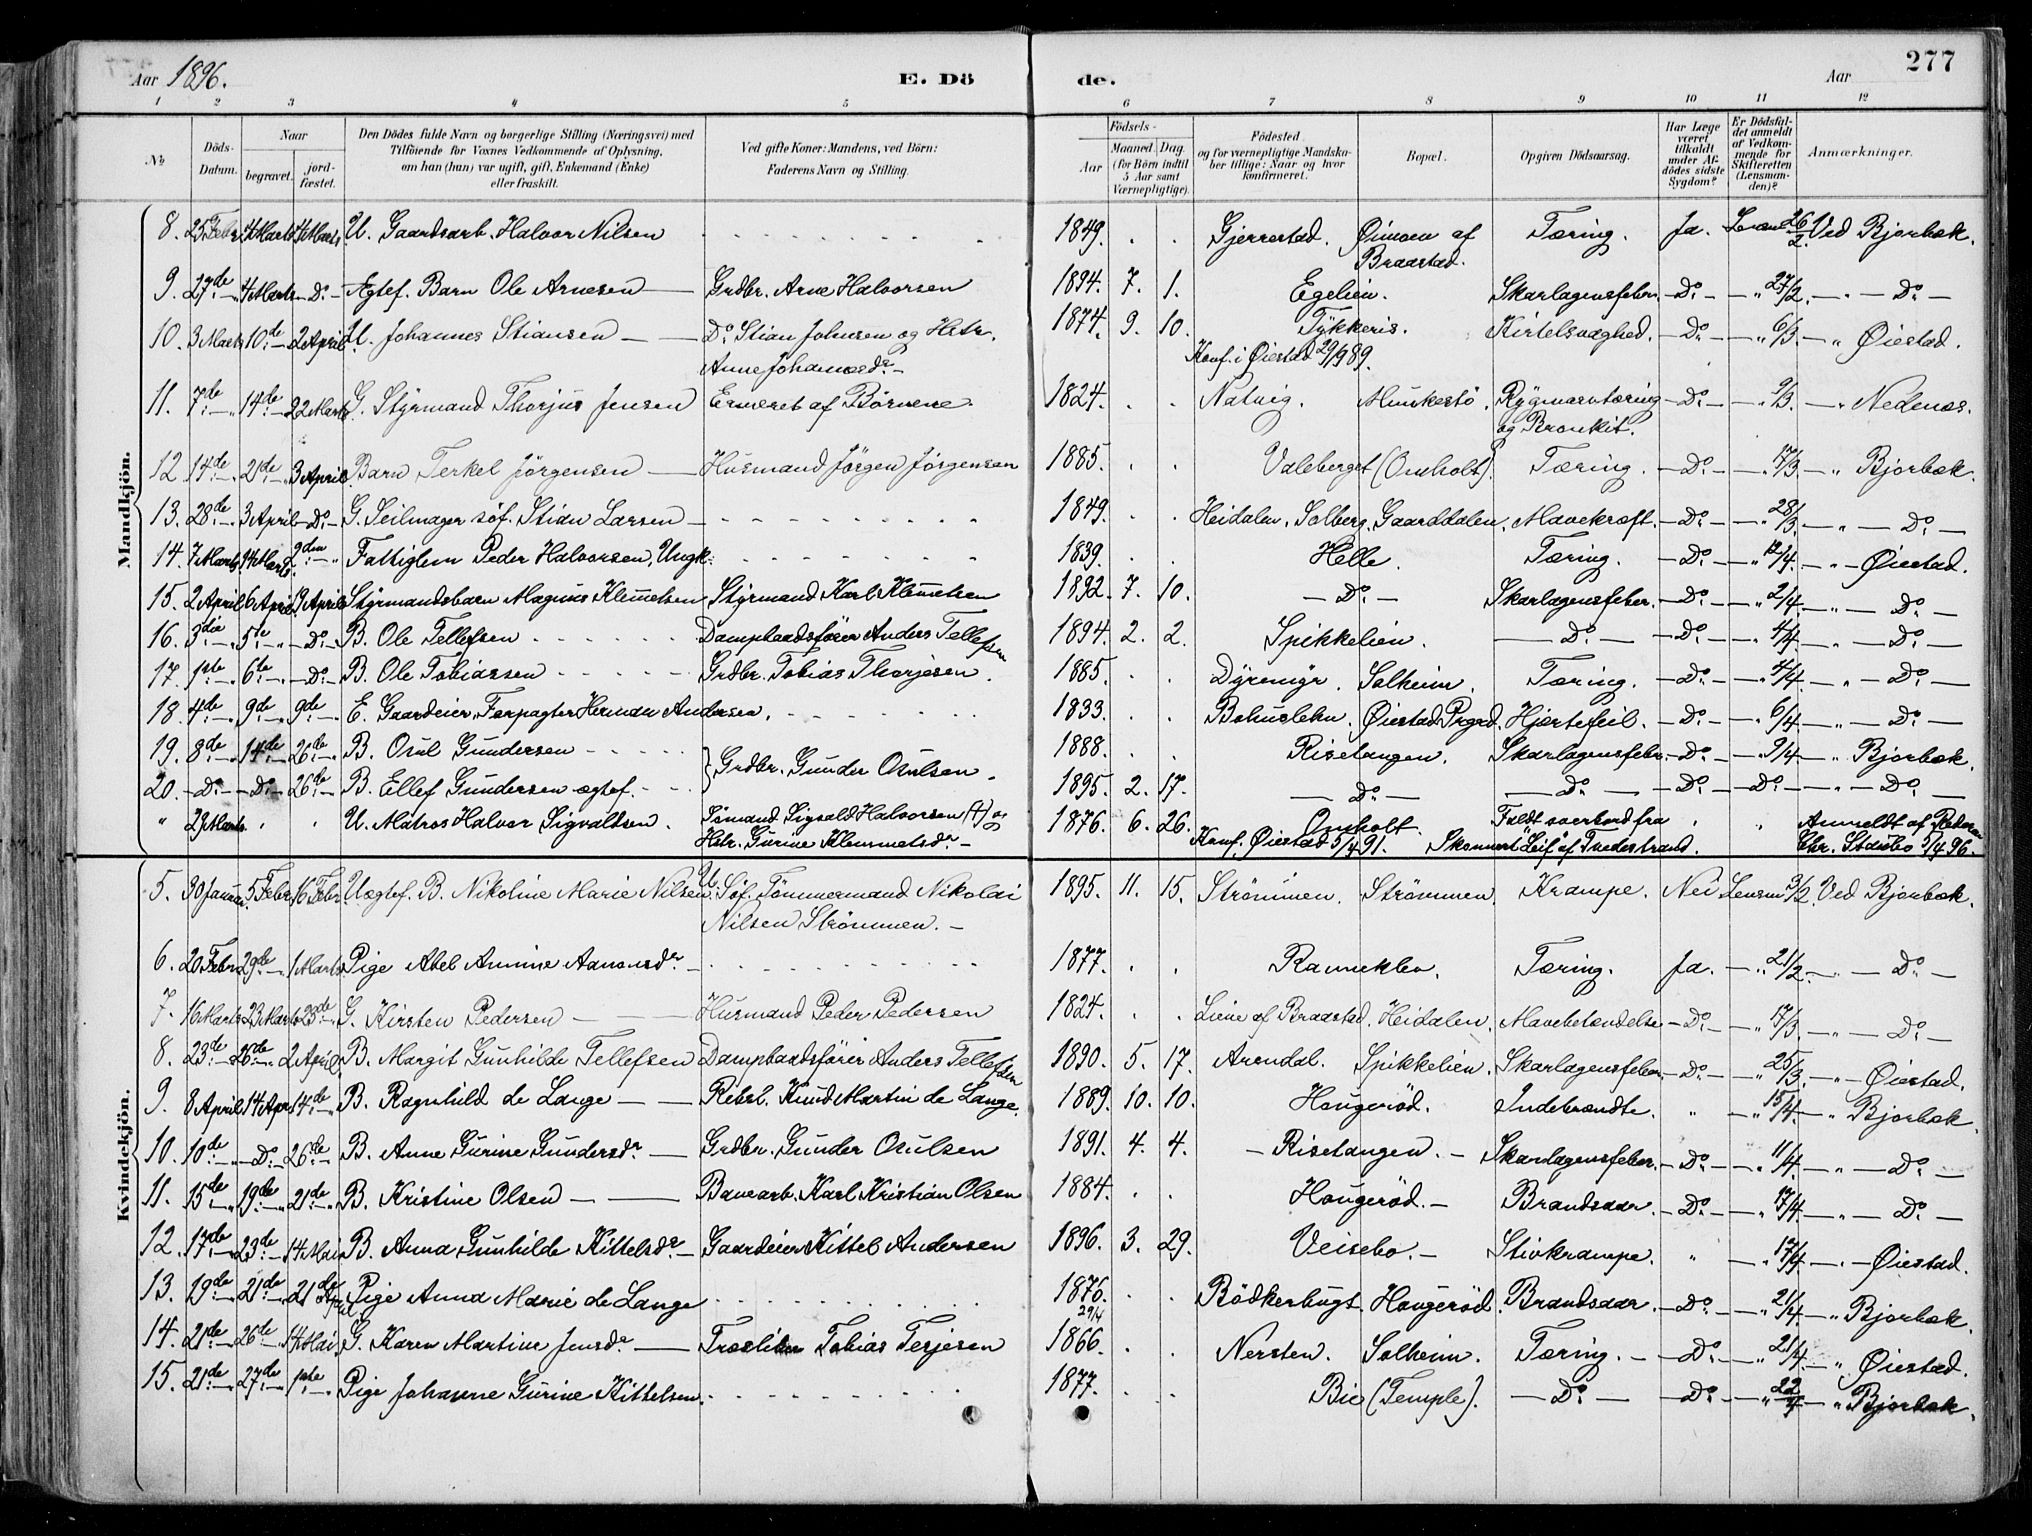 277
Aar 1896. E. Dö de. Aar
1 2 3 4 5 6 7 8 9 10 11 12
No.
Döds-Datum.
Naar
begravet.
jord-fæstet.
Den Dödes fulde Navn og borgerlige Stilling (Næringsvei) med
Tilföiende for Voxnes Vedkommende af Oplysning,
om han (hun) var ugift, gift, Enkemand (Enke)
eller fraskilt.
Ved gifte Koner: Mandens, ved Börn:
Faderens Navn og Stilling.
Födsels-
Aar
Maaned. Dag.
(for Börn indtil
5 Aar samt
Værnepligtige).
Födested
og for værnepligtige Mandska-
ber tillige: Naar og hvor
konfirmeret.
Bopæl.
Opgiven Dödsaarsag.
Har Læge
været
tilkaldt
under Af-
dödes sidste
Sygdom?
Er Dödsfal-
det anmeldt
af Vedkom-
mende for
Skifteretten
(Lensman-
den)?
Anmærkninger.
Mandkjön.
8. 25 Febr. 4 Marts 4 Marts. U. Gaardsarb. Halvor Nilsen 1849. Gjerrestad. Øimoen af Braastad. Tæring. Ja. Lensm. 26/2 Ved Bjorbæk.
9. 27de 4 Marts Do Ægtef. Barn Ole Arnesen Grdbr. Arne Halvorsen 1894. 7. 1. Egelien. Skarlagensfeber. Do 27/2. Do
10. 3 Marts 10de 2 April U. Johannes Stiansen Do Stian Johnsen og Hstr. 1874. 9. 10. Tykkeris. Kirtelsvaghed. Do 6/3. Øiestad.
Anne Johannesdr. Konf. i Øiestad 29/9 89.
11. 7de 14de 22 Marts G. Styrmand Thorjus Jensen Ernæret af Börnene. 1824. Natvig. Munkestö. Rygmarvtæring og Bronkit. Do 9/3. Nedenæs.
12 14de 21de 3 April. Barn Terkel Jörgensen Husmand Jörgen Jörgensen 1885. Valeberget (Omholt). Tæring. Do 17/3. Bjorbæk.
13. 28de 3 April Do G. Seilmager söf. Stian Larsen 1849. Heidalen. Solberg, Gaarddalen. Mavekræft. Do 28/3. Do
14. 7 Marts 14 Marts. 9den Fattiglem Peder Halvorsen, Ungk. 1839. Helle. Tæring. Do 12/4. Øiestad.
15. 2 April 6 April 9 April Styrmandsbarn Magnus Klemetsen Styrmand Karl Klemetsen 1892. 7. 10. Do Skarlagensfeber. Do 2/4. Do
16. 3die 5te Do B. Ole Tellefsen Dampbaadsförer Anders Tellefsen 1894. 2. 2. Spikkelien. Do Do 4/4. Do
17. 1ste 6te Do B. Ole Tobiassen Grdbr. Tobias Thorjesen. 1885. Dyremyr. Solheim. Tæring. Do 4/4. Do
18. 4de 9de 9de E. Gaardeier, Forpagter Herman Andersen. 1833. Bohuslehn. Øiestad Prgrd. Hjertefeil. Do 6/4. Do
19. 8de 14de 26de B. Osul Gundersen Grdbr. Gunder Osulsen. 1888. Risetangen. Skarlagensfeber. Do 9/4. Bjorbæk.
20. Do Do 26de B. Ellef Gundersen ægtef. 1895. 2. 17. Do Do Do Do Do
" 29 Marts. U. Matros Halvor Sigvaldsen. Sömand Sigvald Halvorsen (+) og 1876. 6. 26. Omholt. Faldt overbord fra Anmeldt af Rederen
Hstr. Gurine Klemmetsdr. Konf. Øiestad 5/4 91. Skonnert "Leif" af Tvedestrand. Chr. Stausbo 5/4 96.
Kvindekjön.
5. 30 Januar. 5 Febr 16 Febr. Uægtef. B. Nikoline Marie Nilsen. U. Söf. Tömmermand Nikolai 1895. 11. 15. Strömmen. Strömmen. Krampe. Nei Lensm 3/2. Ved Bjorbæk.
Nilsen Strömmen.
6. 20 Febr 29de 1 Marts Pige Abel Amine Aanonsdr. 1877. Ravnekleo. Tæring. Ja. 21/2. Do
7. 16 Marts 23 Marts 23de G. Kirsten Pedersen Husmand Peder Pedersen 1824. Liene af Braastad. Heidalen. Mavebetændelse Do 17/3. Do
8. 23de 26de 2 April. B. Margit Gunhilde Tellefsen Dampbaadsförer Anders Tellefsen 1890. 5. 17. Arendal. Spikkelien. Skarlagensfeber. Do 25/3. Øiestad.
9. 8 April 14 Apr 14de B. Ragnhild de Lange Rebsl. Knud Martin de Lange. 1889. 10. 10. Hougeröd. Indebrændte. " 15/4. Bjorbæk.
10. 10de Do 26de B. Anne Gurine Gundersdr. Grdbr. Gunder Osulsen 1891. 4. 4. Risetangen. Skarlagensfeber. Do 11/4. Do
11. 15de 19de 21de B. Kristine Olsen Banearb. Karl Kristian Olsen 1884. Hougeröd. Brandsaar. Do 17/4. Do
12. 17de 23de 14 Mai B. Anna Gunhilde Kittelsdr. Gaardeier Kittel Andersen 1896. 3. 29. Veisebo. Stivkrampe. " 17/4. Øiestad.
13. 19de 21de 21de April Pige Anna Marie de Lange 1876. Bödkerbugt. Hougeröd. Brandsaar. Do 21/4. Bjorbæk.
14. 21de 26de 14 Mai. G. Karen Martine Jensdr. Tobias Terjesen 29/4 1866. Nersten. Solheim. Tæring. Do 21/4. Øiestad.
15. 21de 27de 1ste Pige Johanne Gurine Kittelsen. 1877. Bie (Temple). Do Do 22/4 Bjorbæk.